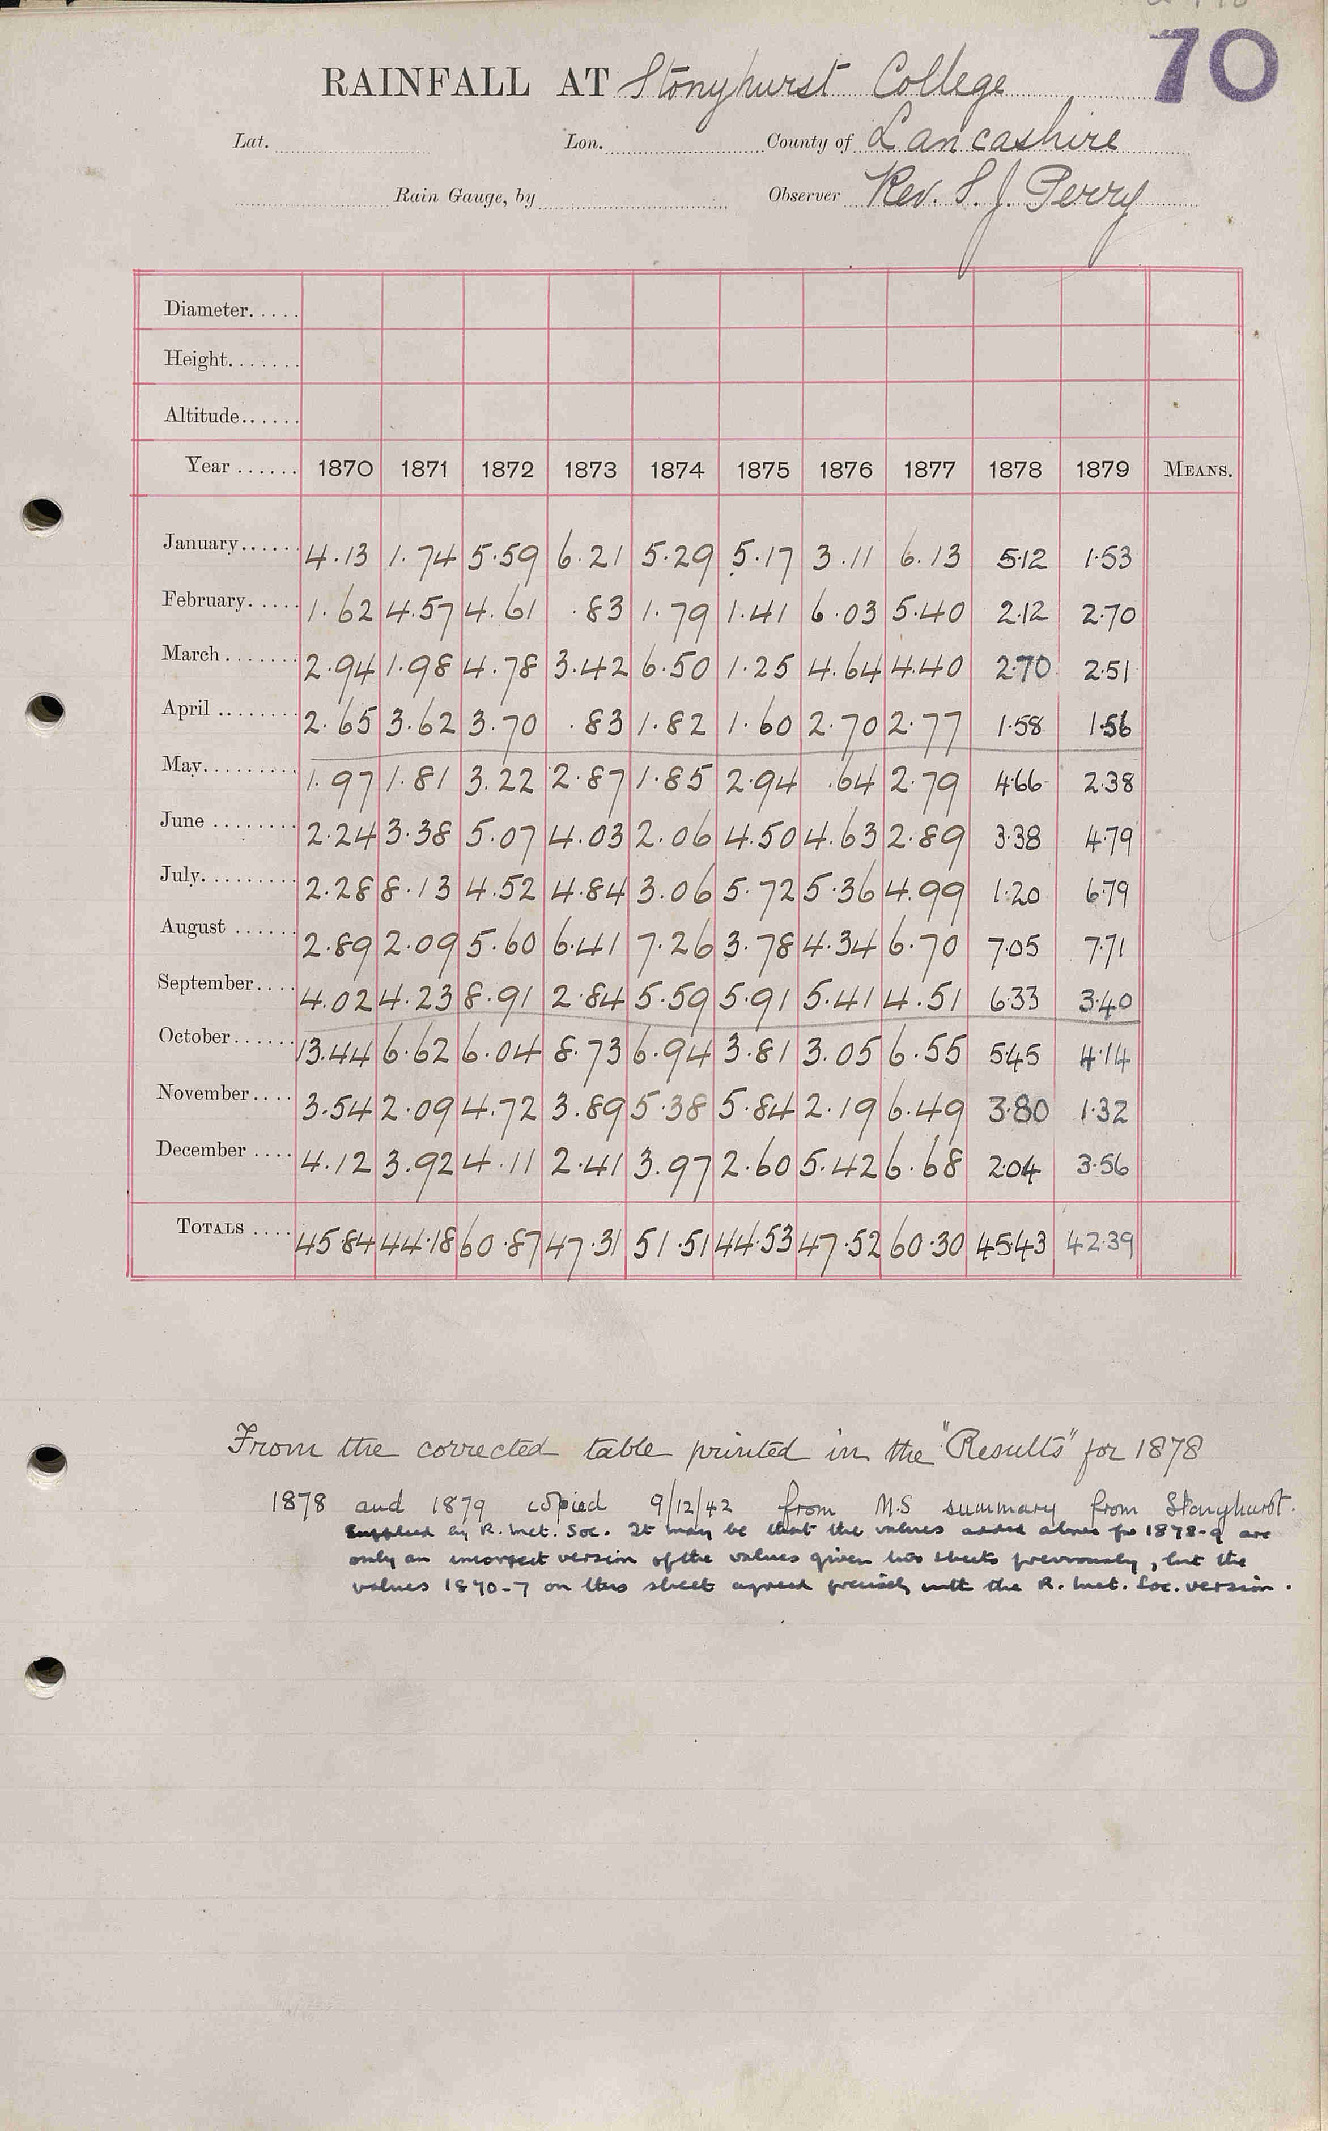 70
RAINFALL AT Stonyhurst College
Lat. Lon. County of Lancashire
Rain Gauge, by Observer Rev. S. J. Perry
Diameter.....
Height.......
Altitude......
Year ...... 1870 1871 1872 1873 1874 1875 1876 1877 1878 1879 MEANS.
January...... 4.13 1.74 5.59 6.21 5.29 5.17 3.11 6.13 5.12 1.53
February..... 1.62 4.57 4.61 .83 1.79 1.41 6.03 5.40 2.12 2.70
March ....... 2.94 1.98 4.78 3.42 6.50 1.25 4.64 4.40 2.70 2.51
April ........ 2.65 3.62 3.70 .83 1.82 1.60 2.70 2.77 1.58 1.56
May......... 1.97 1.81 3.22 2.87 1.85 2.94 .64 2.79 4.66 2.38
June ........ 2.24 3.38 5.07 4.03 2.06 4.50 4.63 2.89 3.38 4.79
July......... 2.28 8.13 4.52 4.84 3.06 5.72 5.36 4.99 1.20 6.79
August ...... 2.89 2.09 5.60 6.41 7.26 3.78 4.34 6.70 7.05 7.71
September.... 4.02 4.23 8.91 2.84 5.59 5.91 5.41 4.51 6.33 3.40
October...... 13.44 6.62 6.04 8.73 6.94 3.81 3.05 6.55 5.45 4.14
November.... 3.54 2.09 4.72 3.89 5.38 5.84 2.19 6.49 3.80 1.32
December .... 4.12 3.92 4.11 2.41 3.97 2.60 5.42 6.68 2.04 3.56
TOTALS .... 45.84 44.18 60.87 47.31 51.51 44.53 47.52 60.30 45.43 42.39
From the corrected table printed in the "Results" for 1878
1878 and 1879 copied 9/12/42 from M.S summary from Stonyhurst.
Supplied by R. Met. Soc. It may be that the values added above for 1878-9 are
only an incorrect version of the values given two sheets previously, but the
values 1870-7 on this sheet agreed precisely with the R. Met. Soc. version.